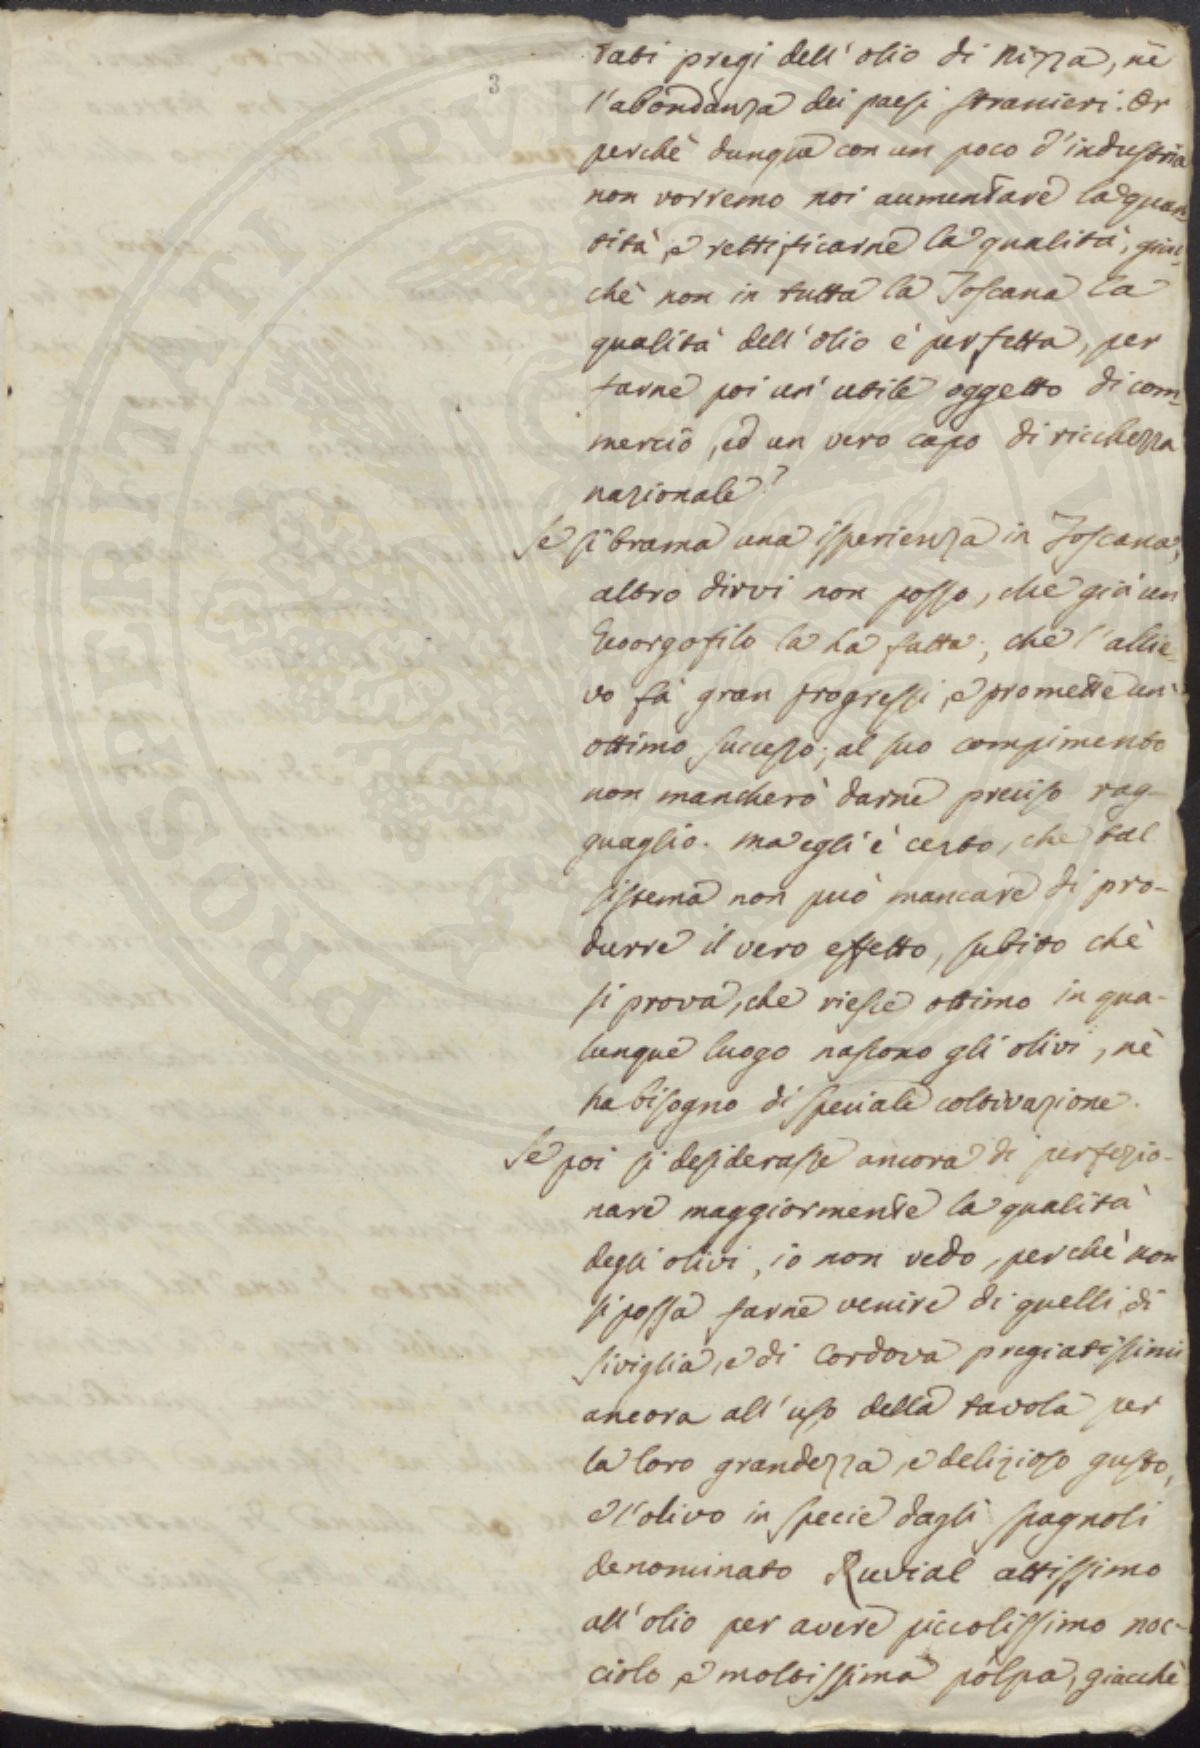 3
tati pregi dell'olio di Nizza, nè
l'abondanza dei paesi stranieri. Or
perchè dunque con un poco d'industria
non vorremo noi aumentare la quan-
tità, e rettificarne la qualità, giac-
chè non in tutta la Toscana la
qualità dell'olio è perfetta, per
farne poi un'utile oggetto di com-
mercio, ed un vero capo di ricchezza
nazionale?
Se si brama una isperienza in Toscana,
altro dirvi non posso, che già un
Georgofilo la ha fatta; che l'allie-
vo fà gran progressi, e promette un'
ottimo successo; al suo compimento
non mancherò darne preciso rag-
guaglio. Ma egli è certo, che tal
sistema non può mancare di pro-
durre il vero effetto, subito chè
si prova, che riesce ottimo in qua-
lunque luogo nascono gli olivi, nè
ha bisogno di speciale coltivazione.
Se poi si desiderasse ancora di perfezio-
nare maggiormente la qualità
degli olivi, io non vedo, perchè non
si possa farne venire di quelli di
Siviglia, e di Cordova pregiatissimi
ancora all'uso della tavola per
la loro grandezza, e delizioso gusto,
e l'olivo in specie dagli spagnoli
denominato Ruvial attissimo
all'olio per avere piccolissimo noc-
ciolo, e moltissima polpa, giacchè
PROSPERITATI PVBLICAE